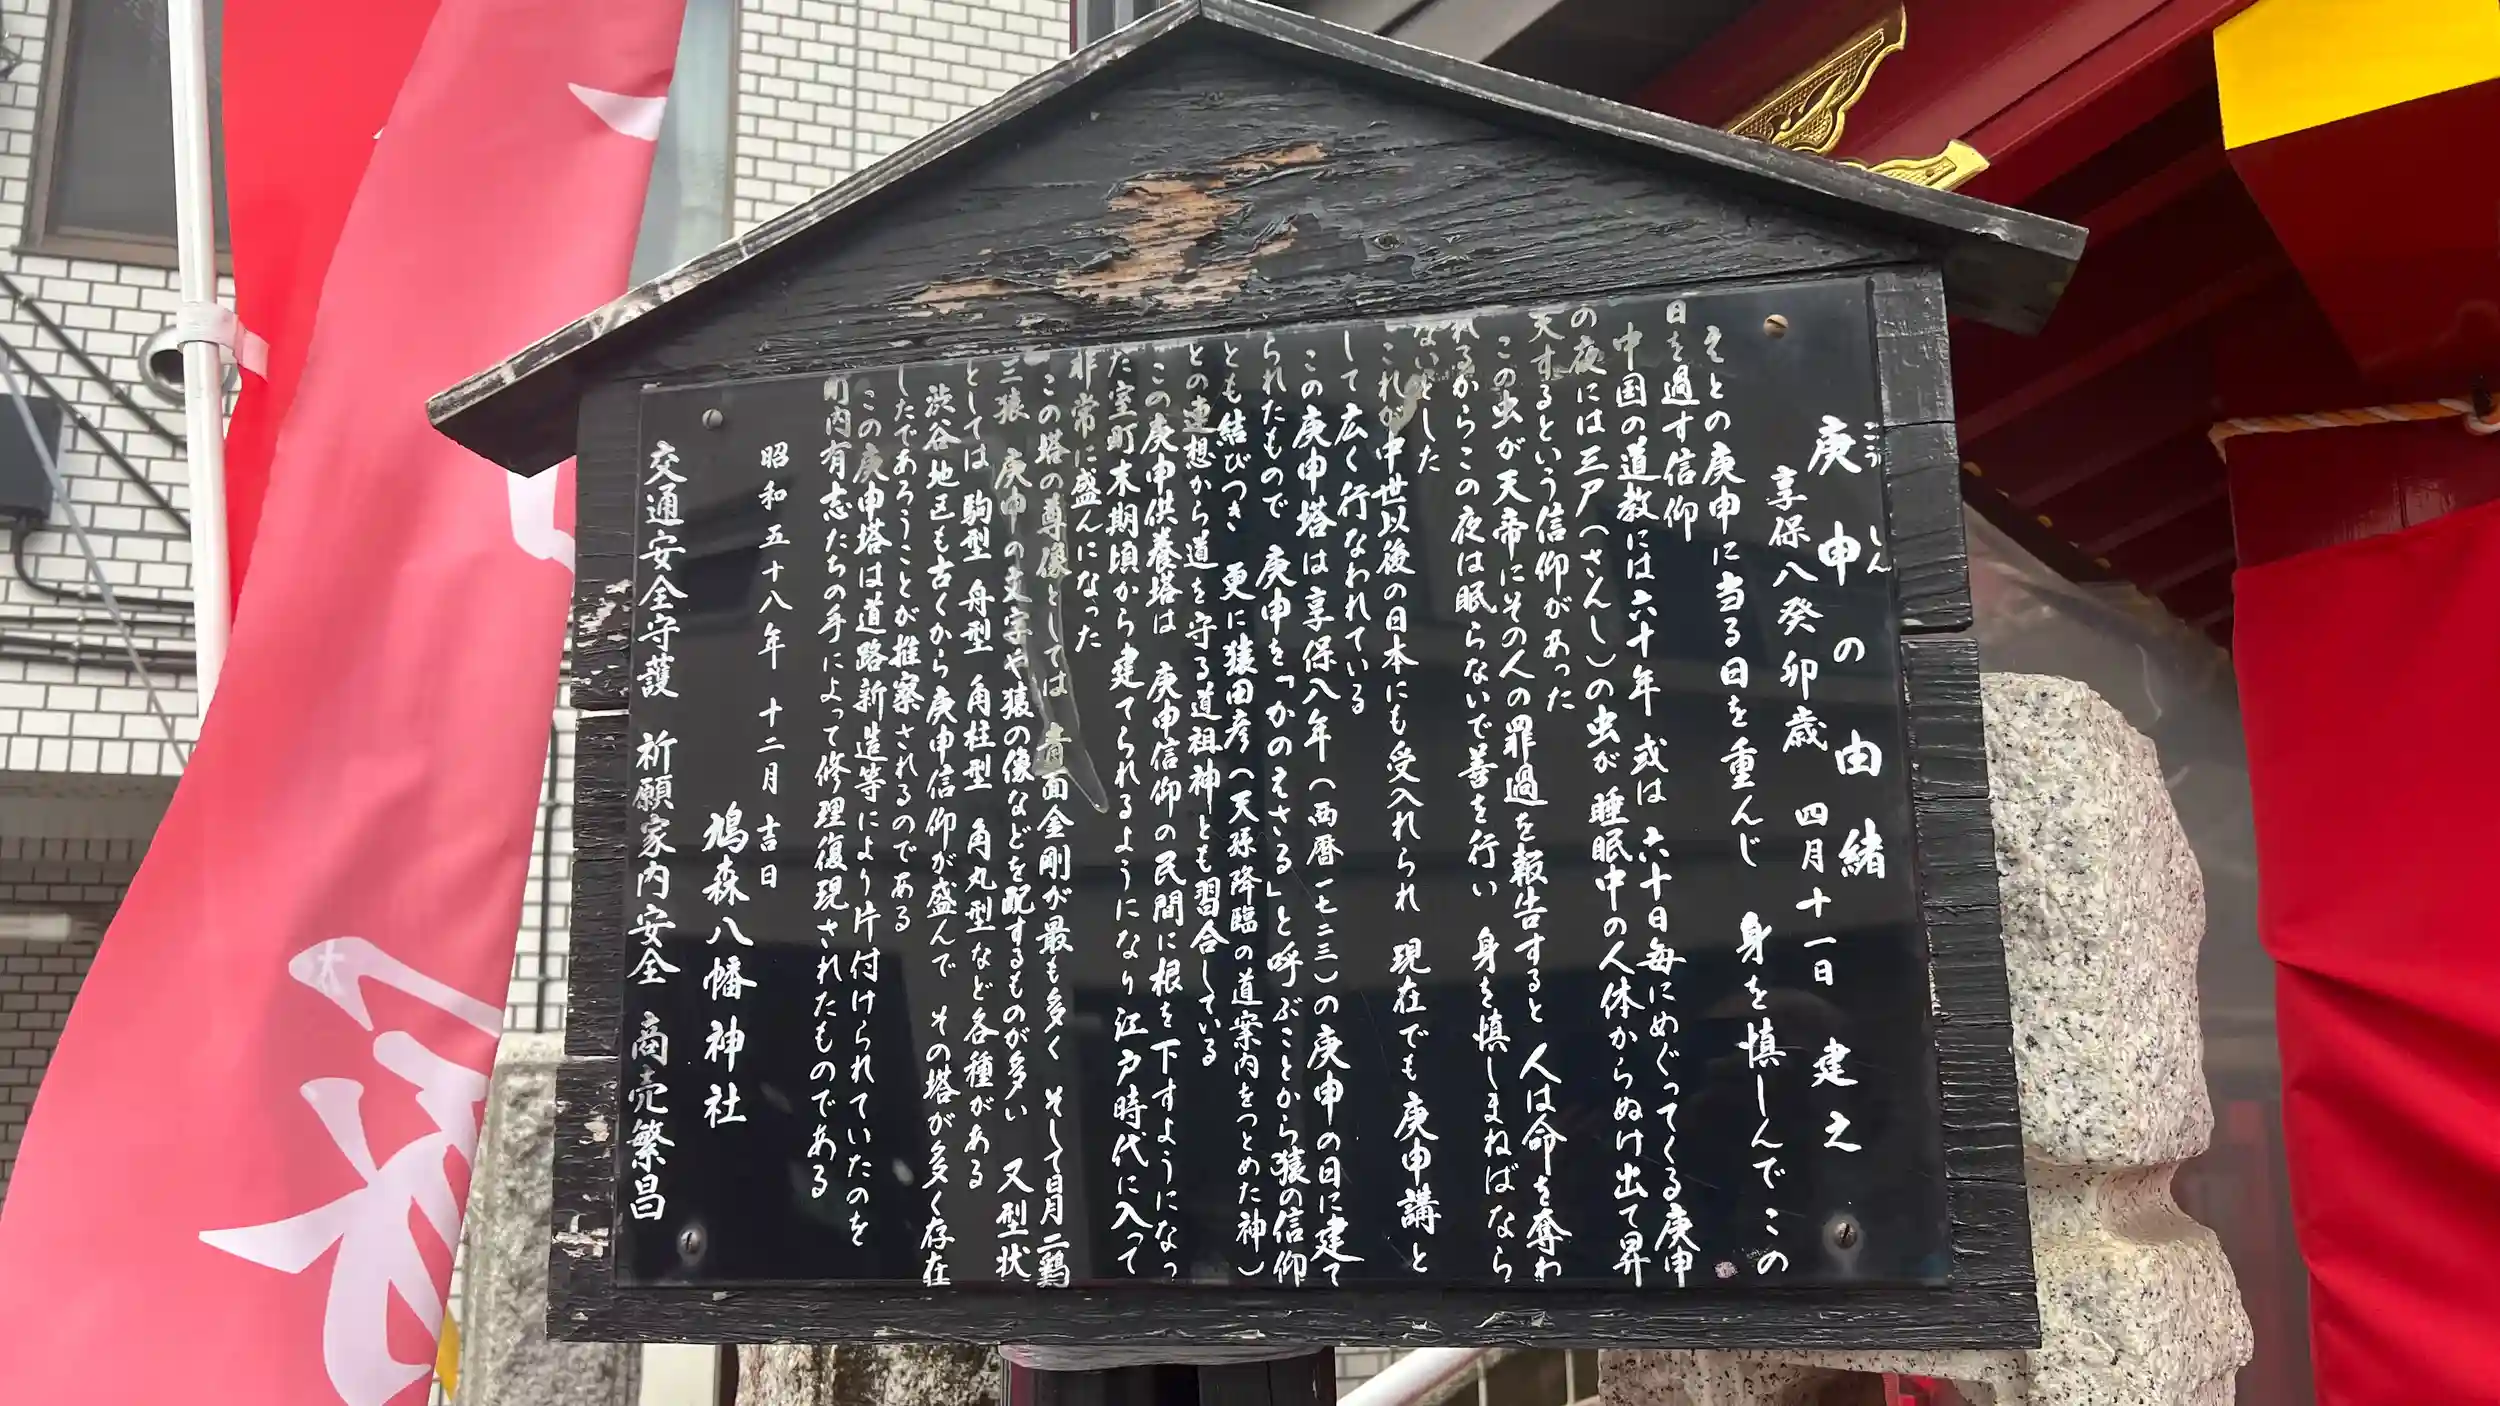 庚申の由緒
こうしん
享保八癸卯歳 四月十一日 建之
えとの庚申に当る日を重んじ 身を慎しんでこの
日を過す信仰
中国の道教には六十年或は 六十日毎にめぐってくる庚申
の夜には三尸(さんし)の虫が 睡眠中の人体からぬけ出て昇
天するという信仰があった
この虫が天帝にその人の罪過を報告すると 人は命を奪わ
れるからこの夜は眠らないで善を行い 身を慎しまねばなら
ないとした
これが中世以後の日本にも受入れられ 現在でも庚申講と
して広く行なわれている
この庚申塔は享保八年(西暦一七二三)の庚申の日に建て
られたもので 庚申を「かのえさる」と呼ぶことから猿の信仰
とも結びつき 更に猿田彦(天孫降臨の道案内をつとめた神)
との連想から道を守る道祖神とも習合している
この庚申供養塔は 庚申信仰の民間に根を下すようになっ
た室町末期頃から建てられるようになり江戸時代に入って
非常に盛んになった
この塔の尊像としては 青面金剛が最も多く そして日月二鶏
三猿 庚申の文字や猿の像などを配するものが多い 又型状
としては 駒型 舟型 角柱型 角丸型など各種がある
渋谷地区も古くから庚申信仰が盛んで その塔が多く存在
したであろうことが推察されるのである
この庚申塔は道路新造等により片付けられていたのを
町内有志たちの手によって修理復現されたものである
昭和五十八年 十二月 吉日
鳩森八幡神社
交通安全守護 祈願家内安全 商売繁昌